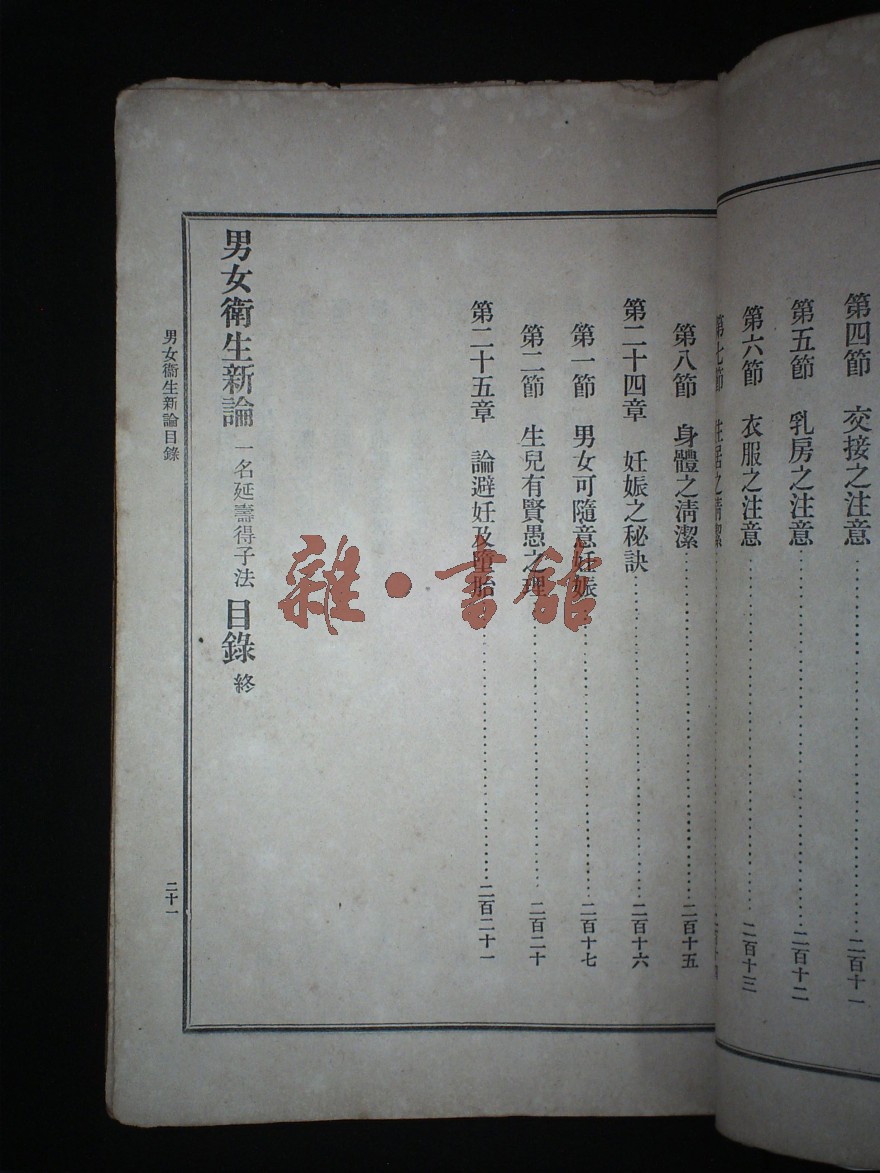 第四節　交接之注意……二百十一
第五節　乳房之注意……二百十二
第六節　衣服之注意……二百十三
第七節　住居之清潔……二百十四
第八節　身體之清潔……二百十五
第二十四章　妊娠之秘訣……二百十六
第一節　男女可隨意妊娠……二百十七
第二節　生兒有賢愚之理……二百二十
第二十五章　論避妊及墮胎……二百二十一
男女衛生新論 一名延壽得子法 目錄 終
男女衛生新論目錄
二十一
雜·書館